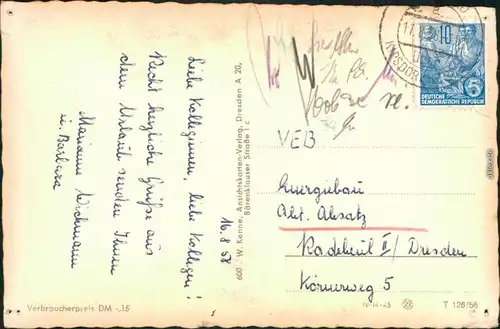 16.8.58
Liebe Kolleginnen, liebe Kollegen!
Recht herzliche Grüße aus
dem Urlaub senden Ihnen
Marianne Wichmann
u. Barbara
600 / W. Kenne, Ansichtskarten-Verlag, Dresden A 20,
Bärenklauser Straße 1 c
10
DEUTSCHE
DEMOKRATISCHE REPUBLIK
5
VEB
Energiebau
Abt. Absatz
Radebeul II / Dresden
Körnerweg 5
Verbraucherpreis DM -,15
IV-14-45
T 126/56